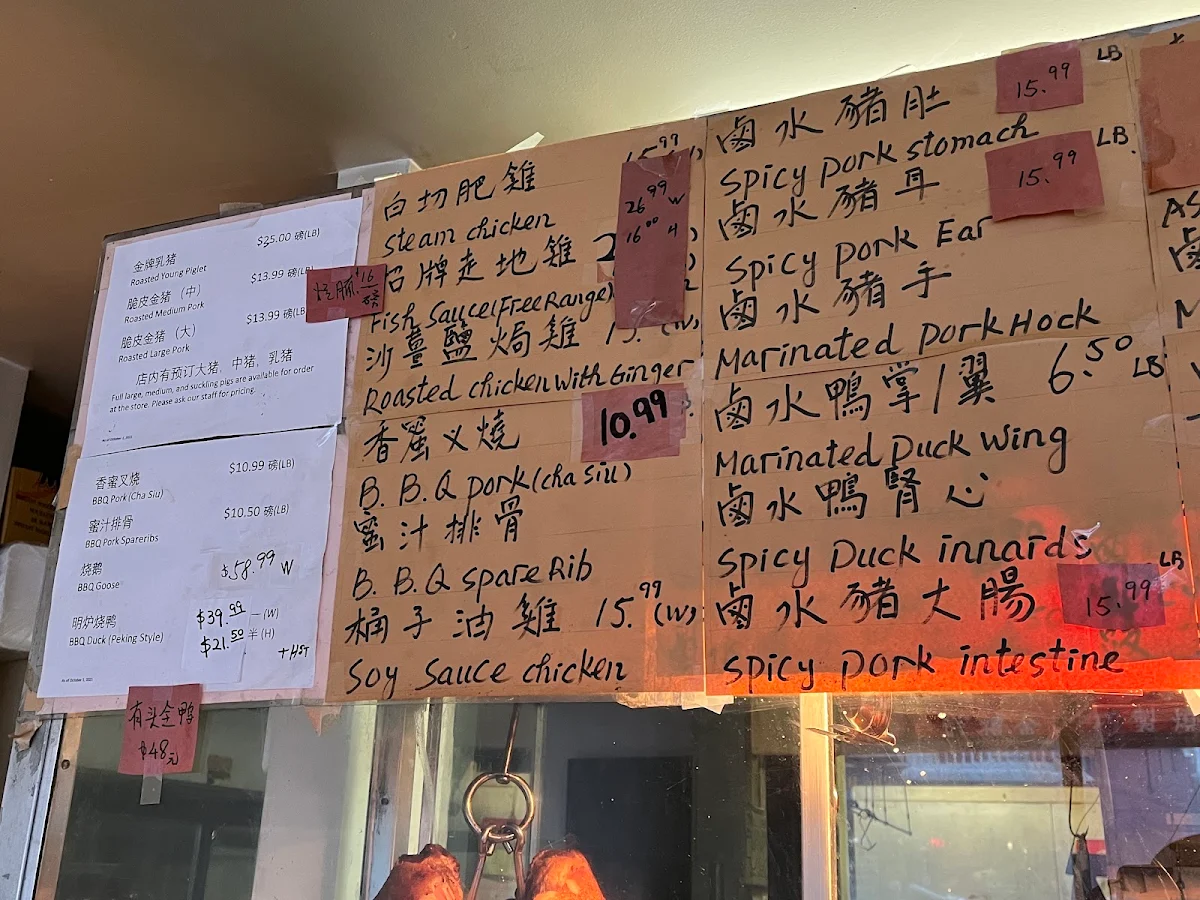 金牌乳猪 $25.00 磅(LB)
Roasted Young Piglet
脆皮金猪 (中) $13.99 磅(LB)
Roasted Medium Pork
脆皮金猪 (大) $13.99 磅(LB)
Roasted Large Pork
店内有预订大猪、中猪、乳猪
Full large, medium, and suckling pigs are available for order
at the store. Please ask our staff for pricing.
$16
磅
香蜜叉烧 $10.99 磅(LB)
BBQ Pork (Cha Siu)
蜜汁排骨 $10.50 磅(LB)
BBQ Pork Spareribs
烧鹅 $58.99 W
BBQ Goose
明炉烧鸭 $39.99 一 (W)
BBQ Duck (Peking Style) $21.50 半 (H)
+HST
有头全鸭
$48元
白切肥雞 15.99
Steam chicken
招牌走地雞
26.99 W
16.00 H
Fish Sauce (Free Range)
沙薑鹽焗雞 15. (W)
Roasted chicken with Ginger
香蜜叉燒 10.99
B.B.Q pork (cha siu)
蜜汁排骨
B.B.Q spare Rib
桶子油雞 15.99 (W)
Soy Sauce chicken
鹵水豬肚 15.99 LB
Spicy pork stomach
鹵水豬耳 15.99 LB.
Spicy pork Ear
鹵水豬手
Marinated pork Hock
鹵水鴨掌/翼 6.50 LB
Marinated Duck wing
鹵水鴨腎心
Spicy Duck innards
鹵水豬大腸 15.99 LB
Spicy pork intestine